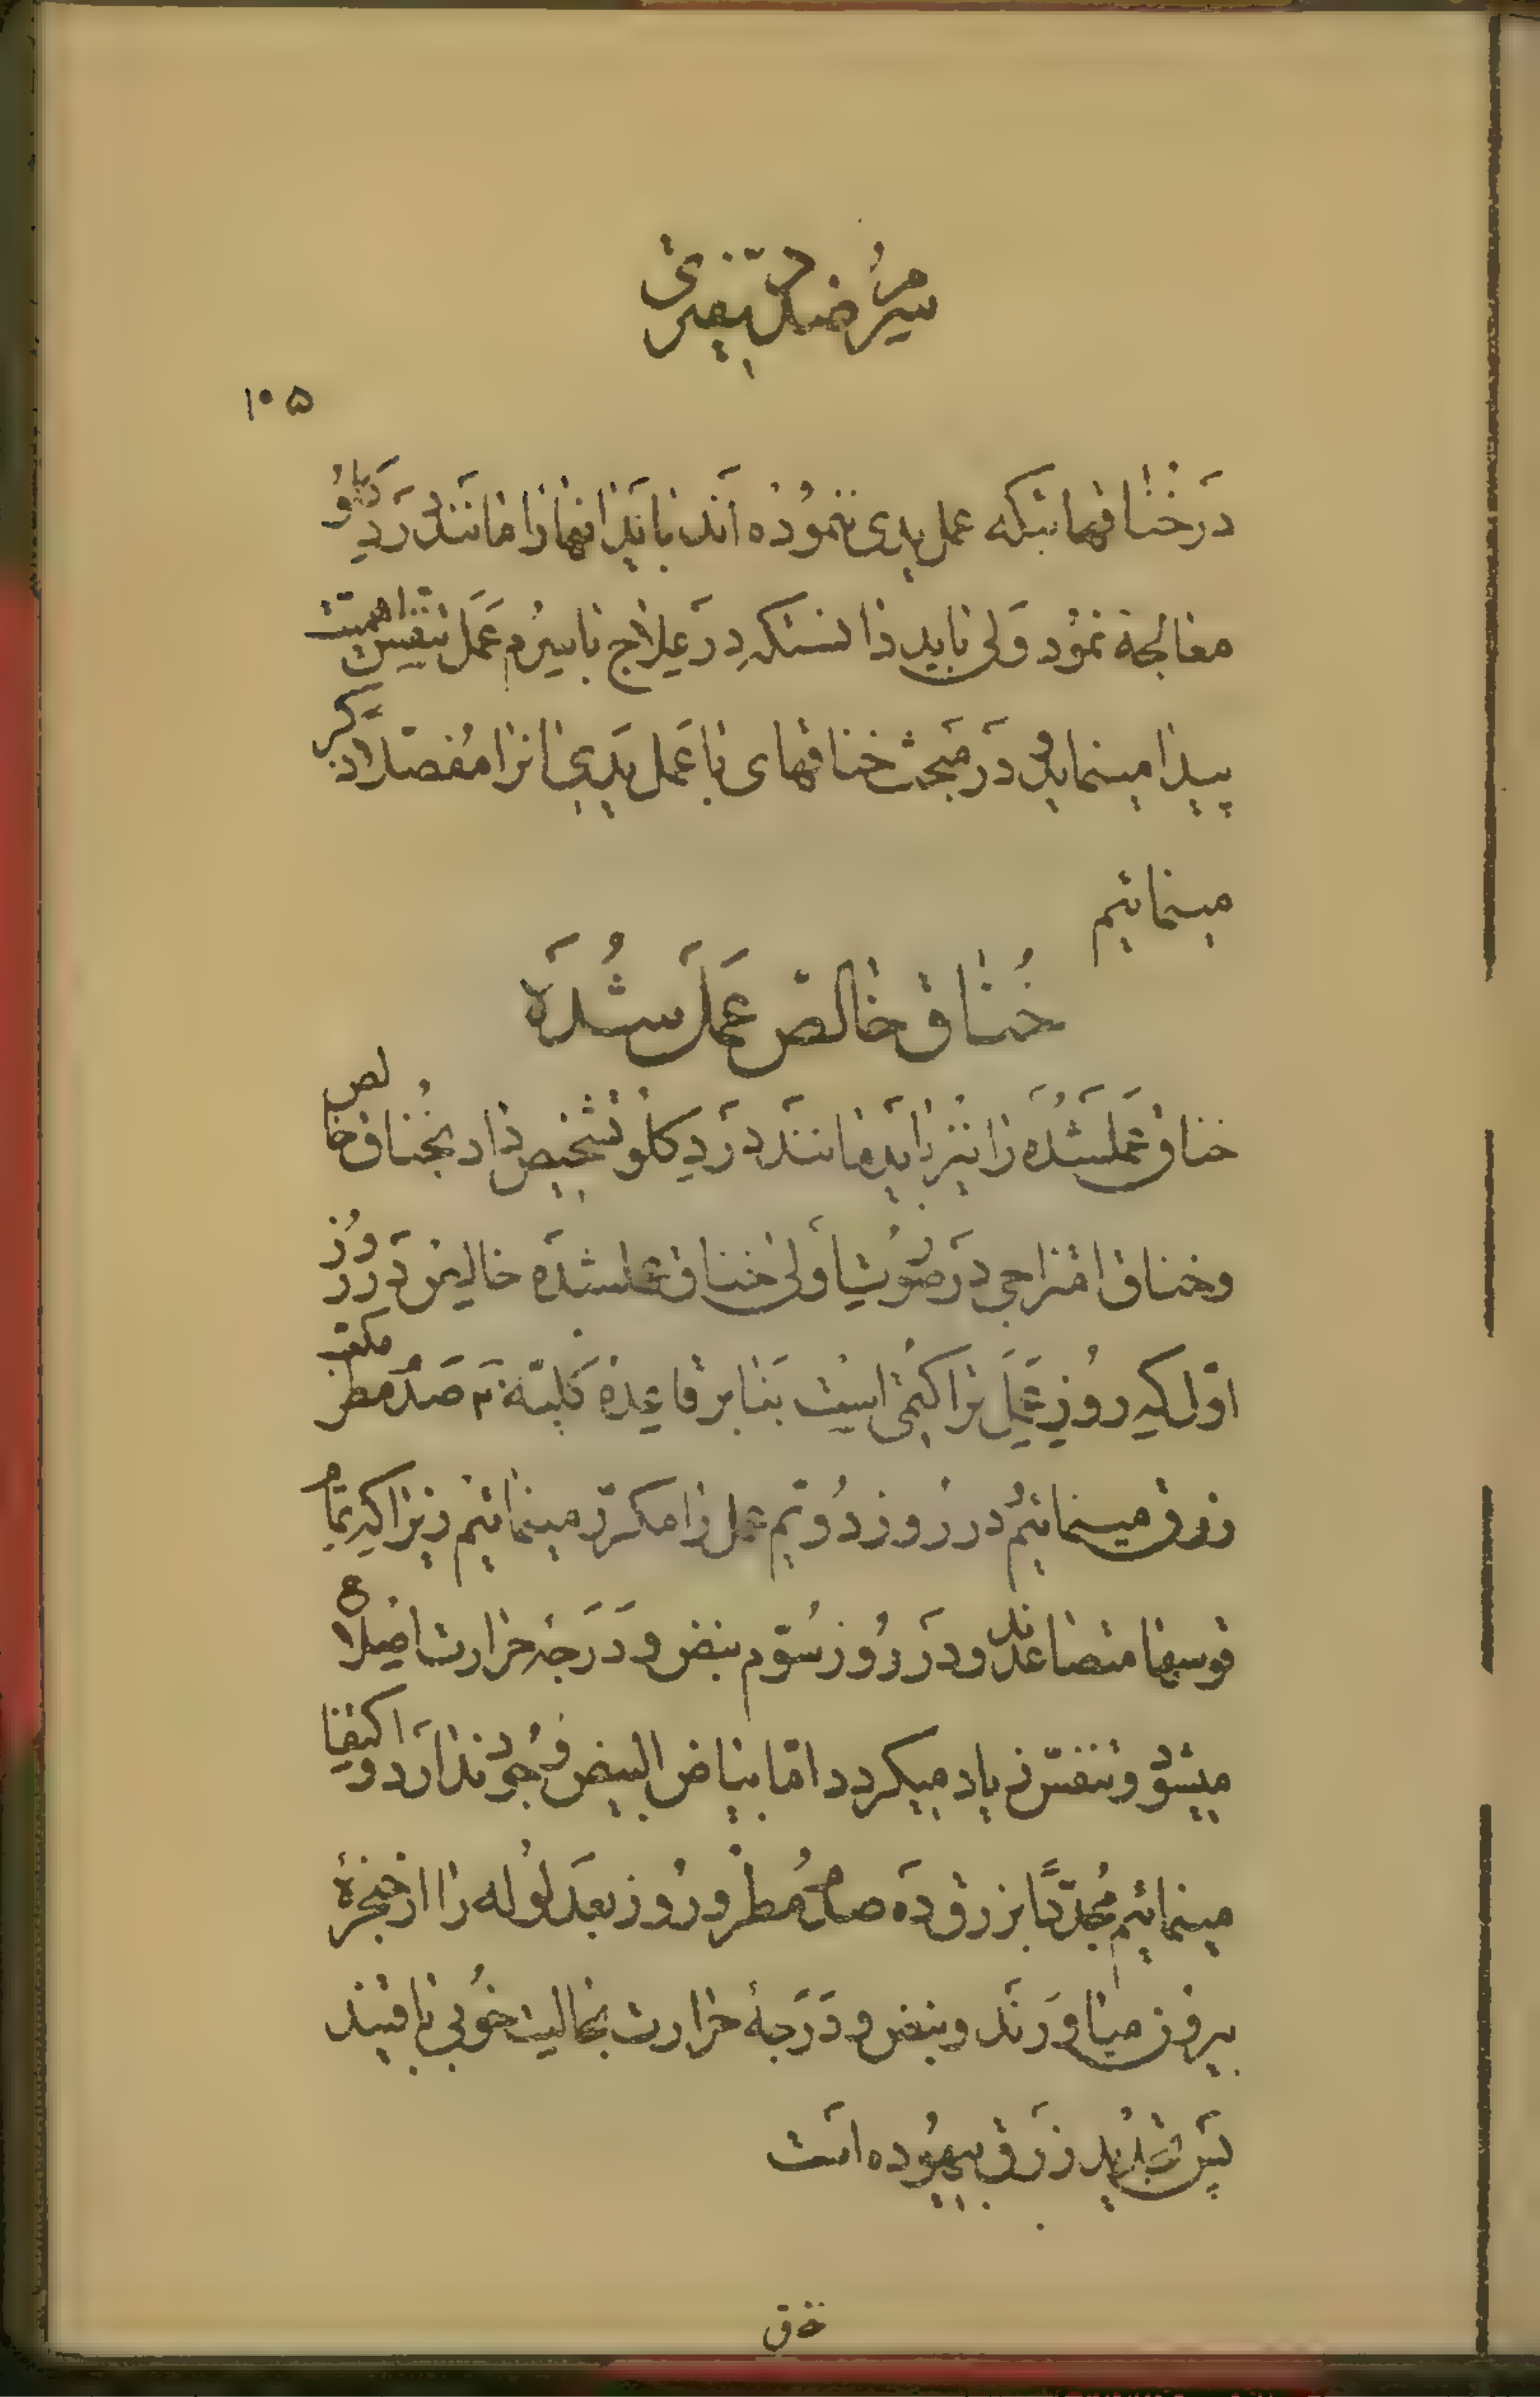 سرم ضد دیفتری
۱۰۵
در خناقهائیکه عمل یدی ننموده اند باید انها را مانند درد گلو
معالجه نمود ولی باید دانست که در علاج با سرم عمل تنفس اهمیت
پیدا مینماید و در مبحث خناقهای با عمل یدی انرا مفصلا ذکر
مینمائیم
خناق خالص عمل شده
خناق عمل شده را نیز باید مانند درد گلو تشخیص داد بخناق خالص
و خناق امتزاجی در صورت اولی خناق عملشده خالص در روز
اول که روز عمل تراکتمی است بنابر قاعده کلیه ۲۰ صد مطر مکعب
زرق مینمائیم در روز دویم عمل را مکرر مینمائیم زیرا که تمام
قوسها متصاعدند و در روز سوم نبض و درجه حرارت
میشود و تنفس زیاد میگردد اما بیاض البیض وجود ندارد و اکتفا
مینمائیم مجددا بزرق ده صدم مطر و روز بعد لوله را از حنجره
بیرون میاورند و نبض و درجهٔ حرارت بحالت خوبی باقیند
پس تجدید زرق بیهوده است